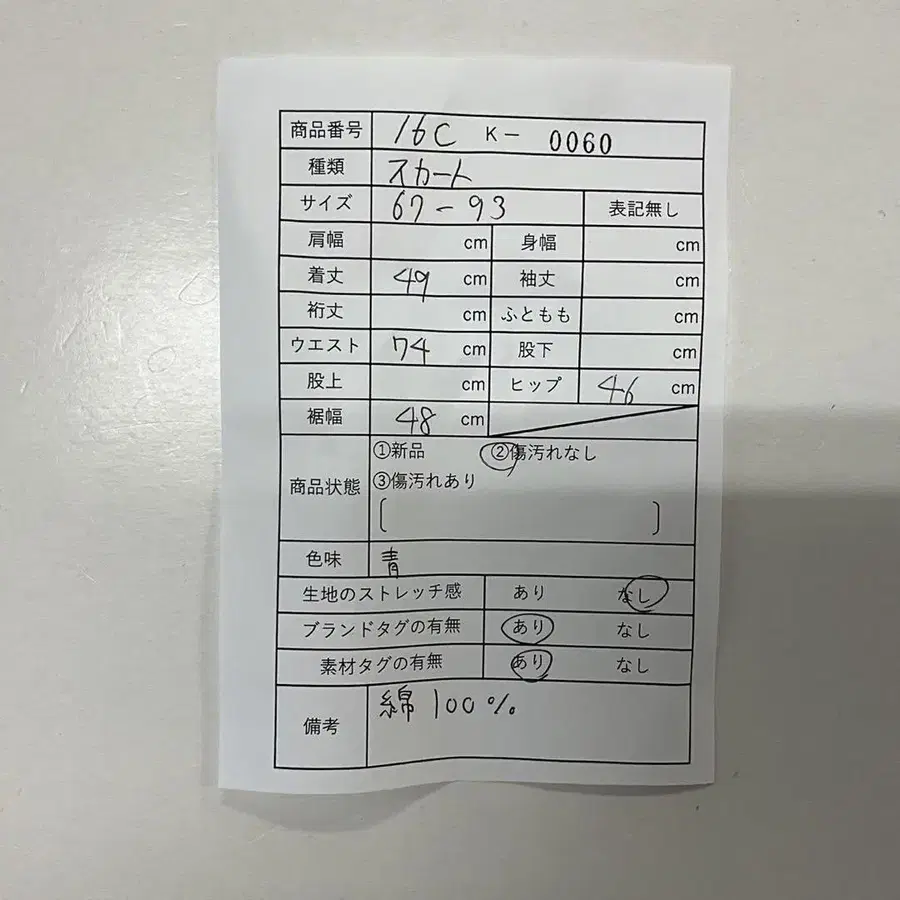 商品番号 16C K- 0060
種類 スカート
サイズ 67-93 表記無し
肩幅 cm 身幅 cm
着丈 49 cm 袖丈 cm
裄丈 cm ふともも cm
ウエスト 74 cm 股下 cm
股上 cm ヒップ 46 cm
裾幅 48 cm
①新品 ②傷汚れなし
商品状態 ③傷汚れあり
[ ]
色味 青
生地のストレッチ感 あり なし
ブランドタグの有無 あり なし
素材タグの有無 あり なし
備考 綿100%